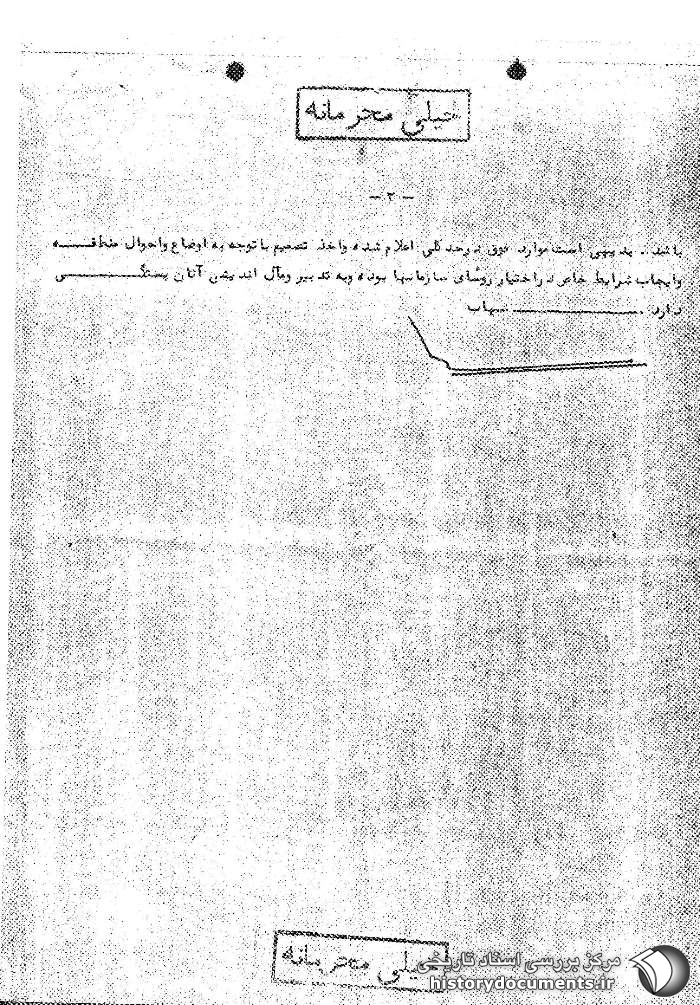 خیلی محرمانه
— ۲ —
باشد. بدیهی است موارد فوق در حد کلی اعلام شده واخذ تصمیم با توجه به اوضاع واحوال منطقـــه
وایجاب شرایط خاص در اختیار روسای سازمانها بوده وبه تدبیر ومآل اندیشی آنان بستگـــــــی
دارد. شهاب
خیلی محرمانه
مرکز بررسی اسناد تاریخی
historydocuments.ir